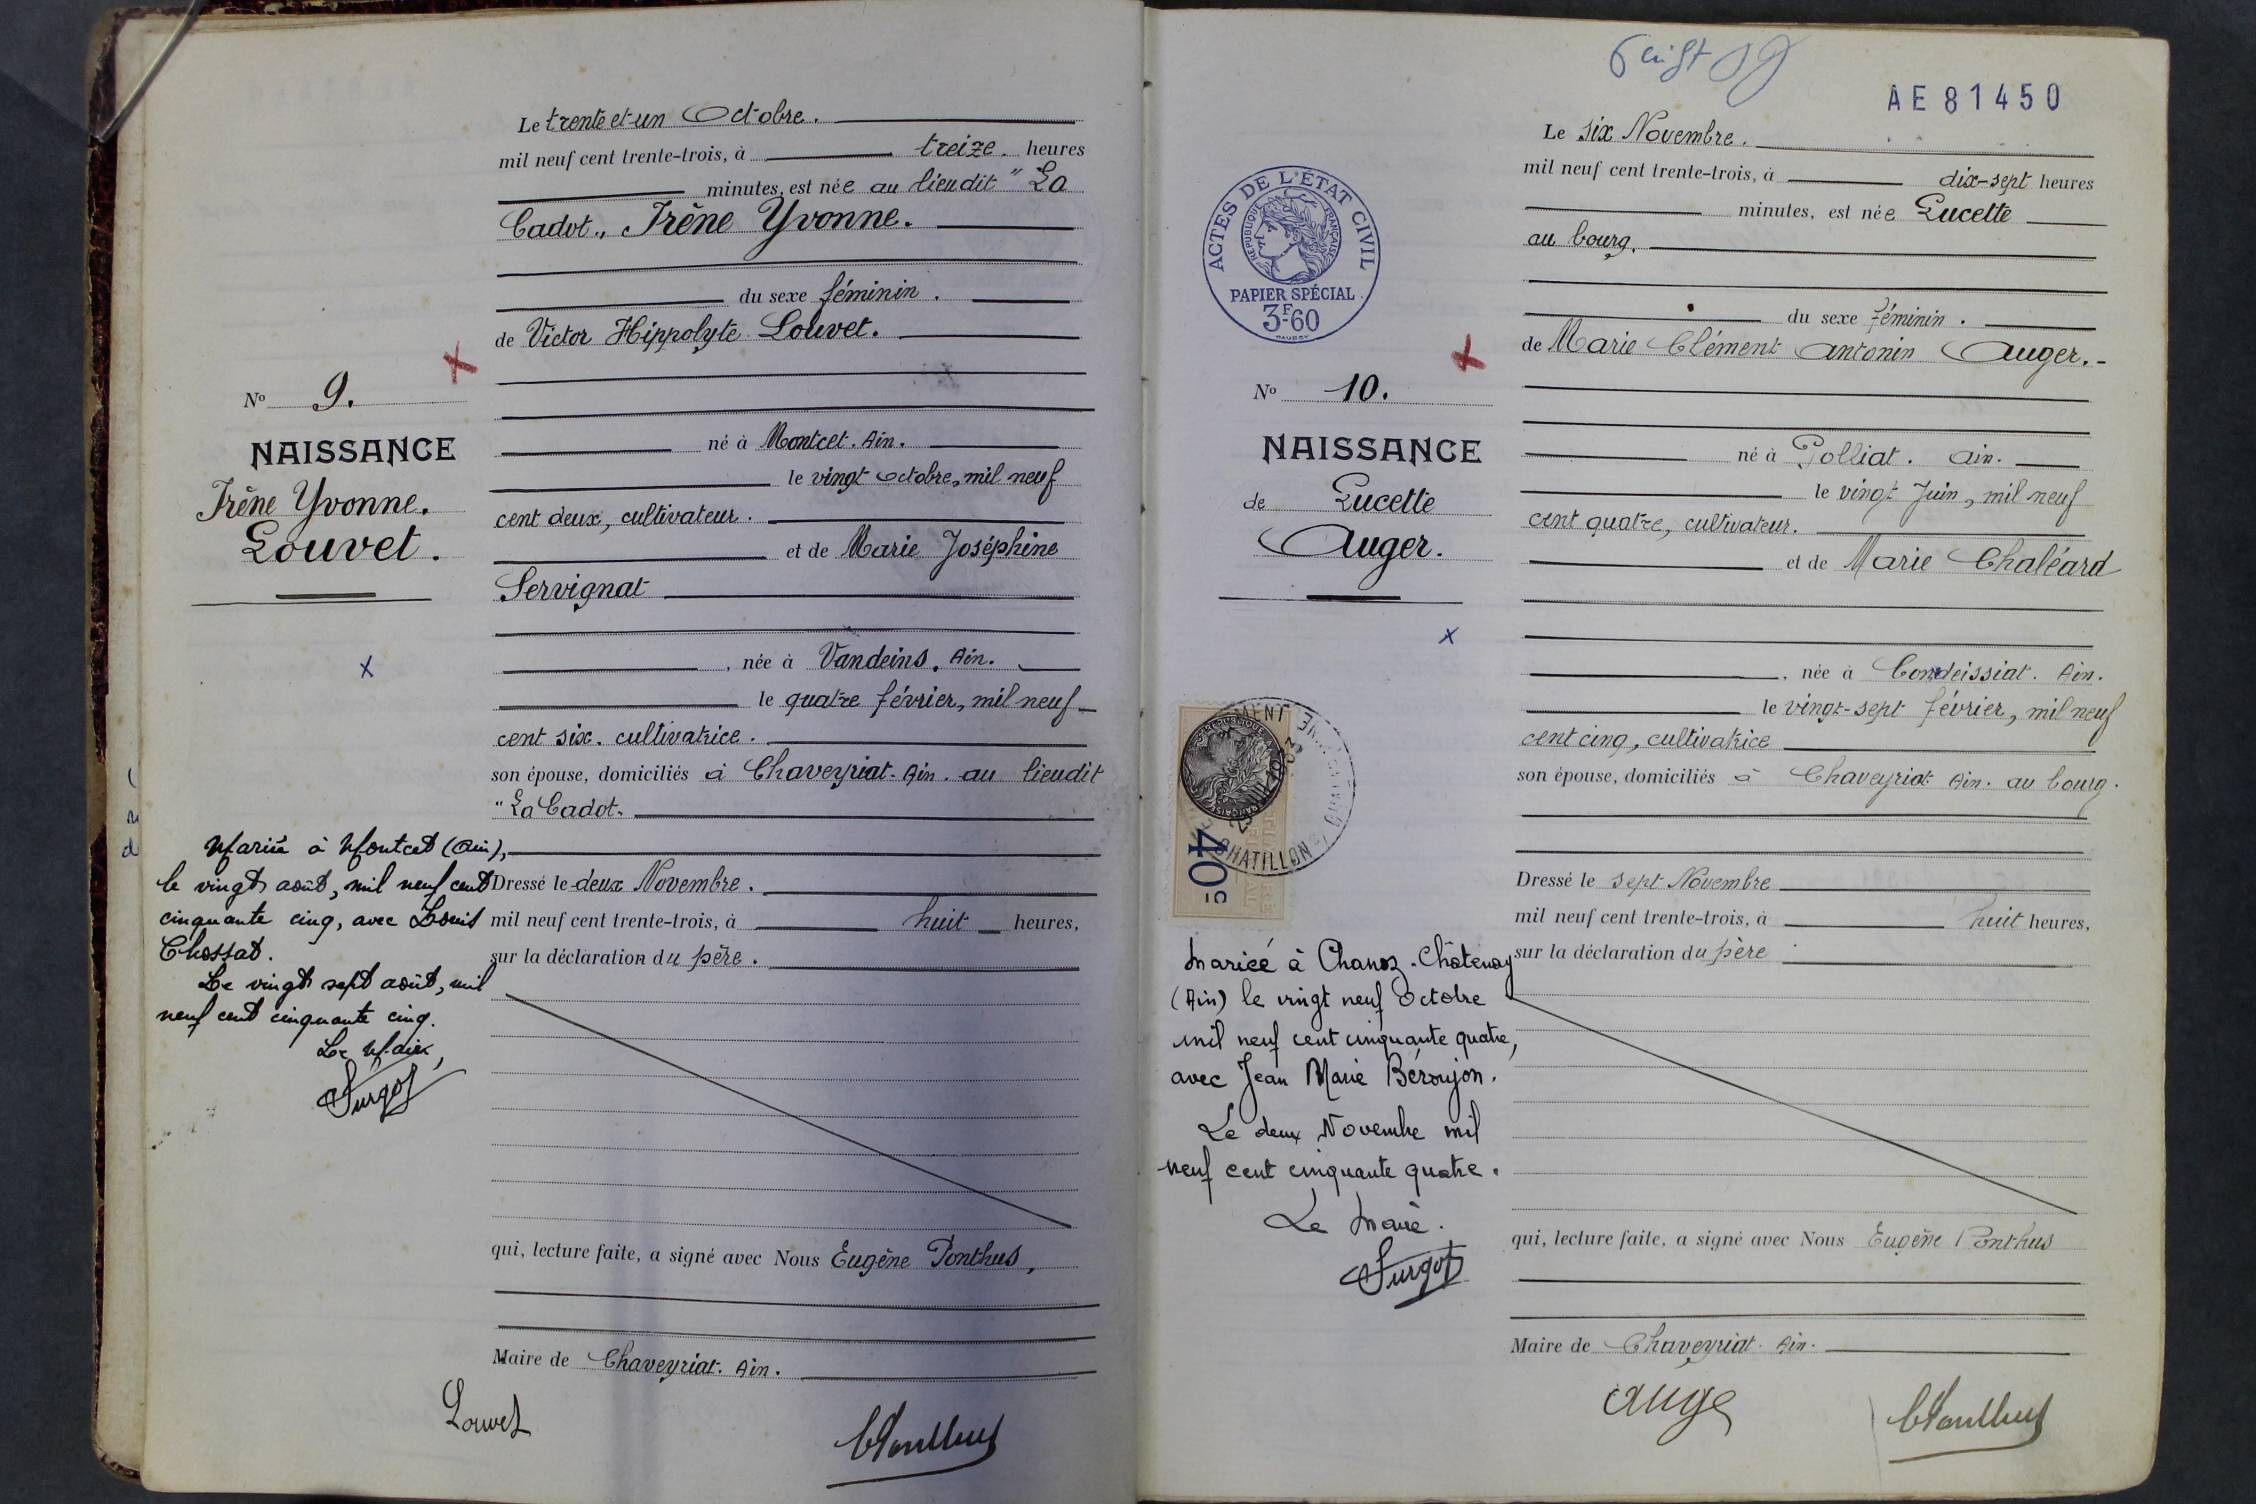 Le trente et un Octobre.
mil neuf cent trente-trois, à treize. heures
minutes, est née au lieudit "La
Cadot", Irène Yvonne.
du sexe féminin.
de Victor Hippolyte Louvet.
né à Montcet. Ain.
le vingt octobre, mil neuf
cent deux, cultivateur.
et de Marie Joséphine
Servignat
, née à Vandeins. Ain.
le quatre février, mil neuf
cent six. cultivatrice.
son épouse, domiciliés à Chaveyriat. Ain. au lieudit
"La Cadot.
Dressé le deux Novembre.
mil neuf cent trente-trois, à huit heures,
sur la déclaration du père.
qui, lecture faite, a signé avec Nous Eugène Ponthus,
Maire de Chaveyriat. Ain.
Louvet
No 9.
NAISSANCE
Irène Yvonne.
Louvet.
x
Mariée à Montcet (Ain),
le vingt août, mil neuf cent
cinquante cinq, avec Louis
Chossat.
Le vingt sept août, mil
neuf cent cinquante cinq.
Le Maire,
AE 81450
Le six Novembre.
mil neuf cent trente-trois, à dix-sept heures
minutes, est née Lucette
au bourg.
du sexe féminin.
de Marie Clément Antonin Auger.
né à Polliat. Ain.
le vingt Juin, mil neuf
cent quatre, cultivateur.
et de Marie Chaléard
, née à Condeissiat. Ain.
le vingt-sept février, mil neuf
cent cinq, cultivatrice
son épouse, domiciliés à Chaveyriat. Ain. au bourg.
Dressé le sept Novembre
mil neuf cent trente-trois, à huit heures,
sur la déclaration du père
qui, lecture faite, a signé avec Nous Eugène Ponthus
Maire de Chaveyriat. Ain.
Auge
ACTES DE L'ÉTAT CIVIL
RÉPUBLIQUE FRANÇAISE
PAPIER SPÉCIAL
3F.60
No 10.
NAISSANCE
de Lucette
Auger.
x
40c
CHATILLON
Mariée à Chanoz-Châtenay
(Ain) le vingt neuf Octobre
mil neuf cent cinquante quatre,
avec Jean Marie Béroujon.
Le deux Novembre mil
neuf cent cinquante quatre.
Le Maire.